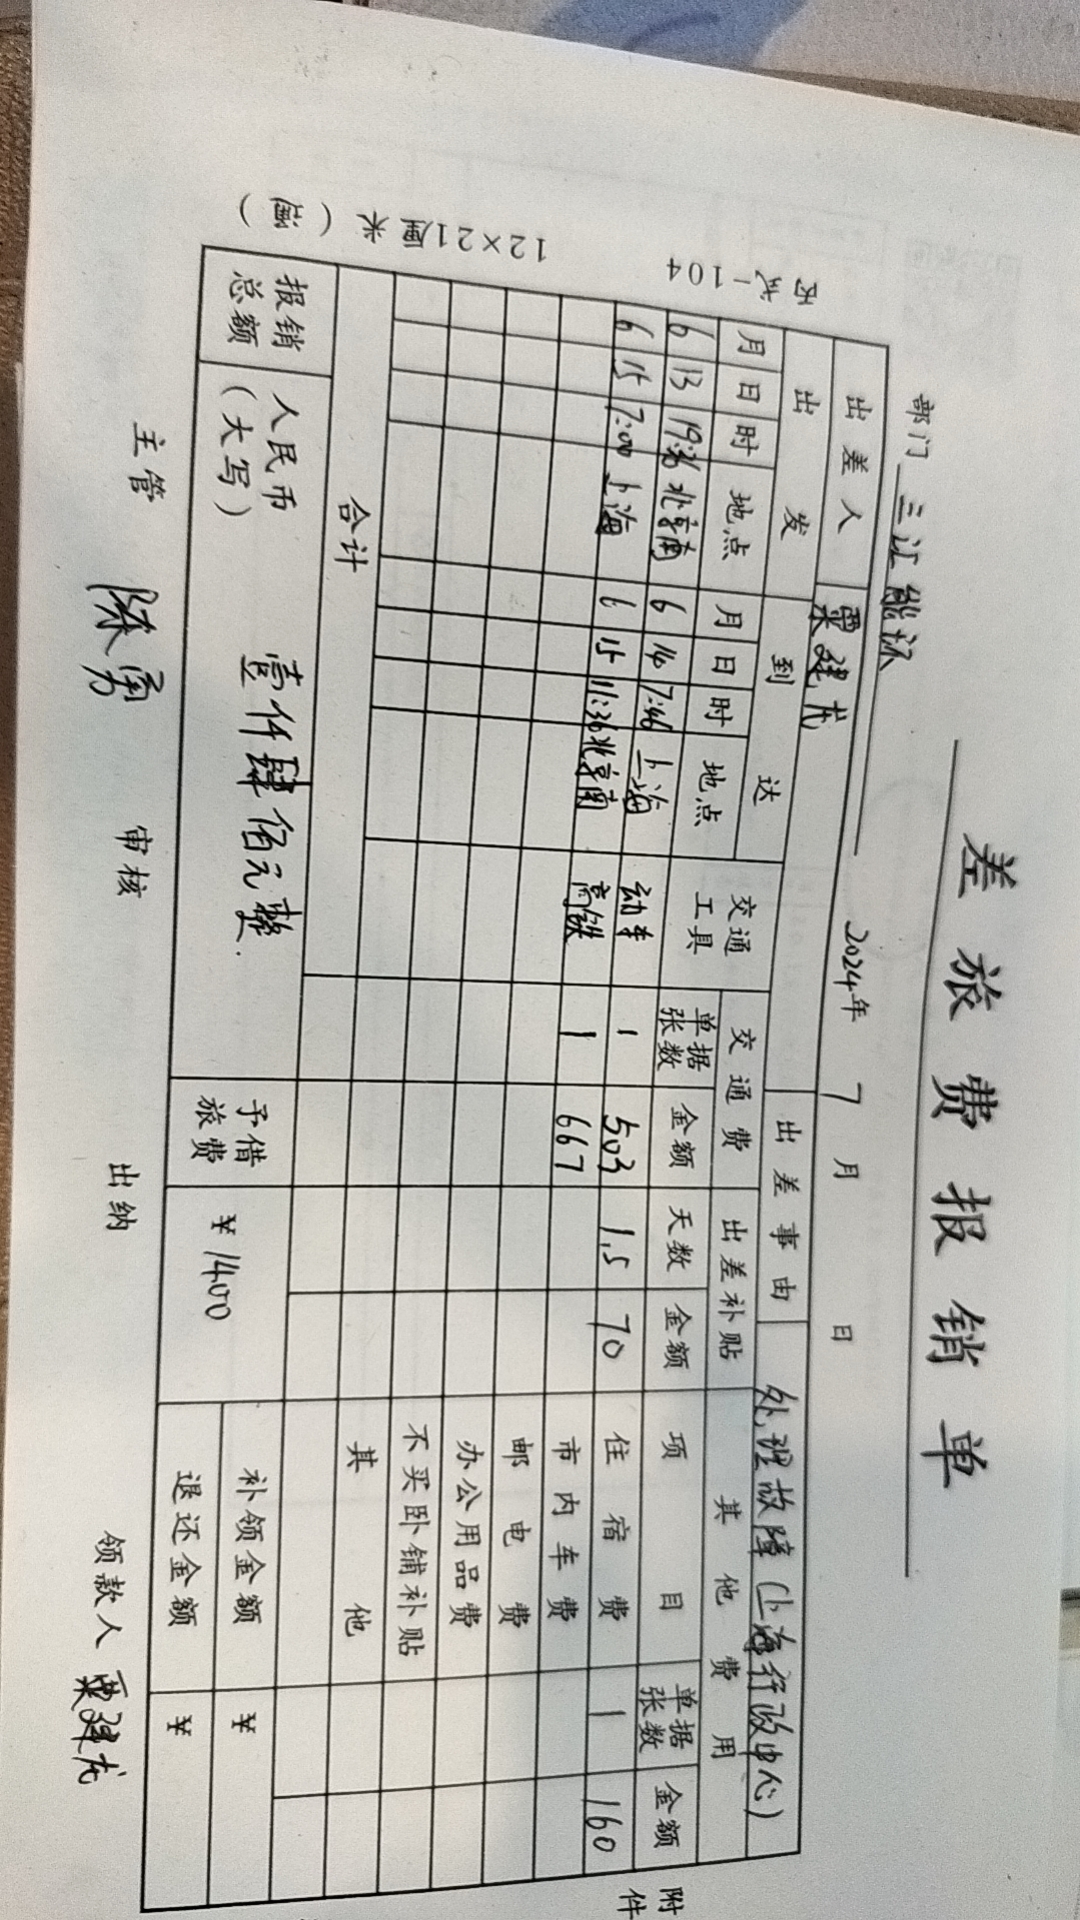 差旅费报销单
部门 三江能环 2024年 7 月 日
出差人 栗建龙 出差事由 处理故障(上海行政中心)
出发 到达 交通工具 交通费 出差补贴 其他费用
月 日 时 地点 月 日 时 地点 单据张数 金额 天数 金额 项目 单据张数 金额
6 13 19:36 北京南 6 14 7:46 上海 动车 1 503 1.5 70 住宿费 1 160
6 15 7:00 上海 6 15 11:36 北京南 高铁 1 667 市内车费
邮电费
办公用品费
不买卧铺补贴
其他
合计
报销总额 人民币(大写) 壹仟肆佰元整. 予借旅费 ¥1400 补领金额 ¥
退还金额 ¥
主管 陈勇 审核 出纳 领款人 栗建龙
丙式-104
12×21厘米
附件